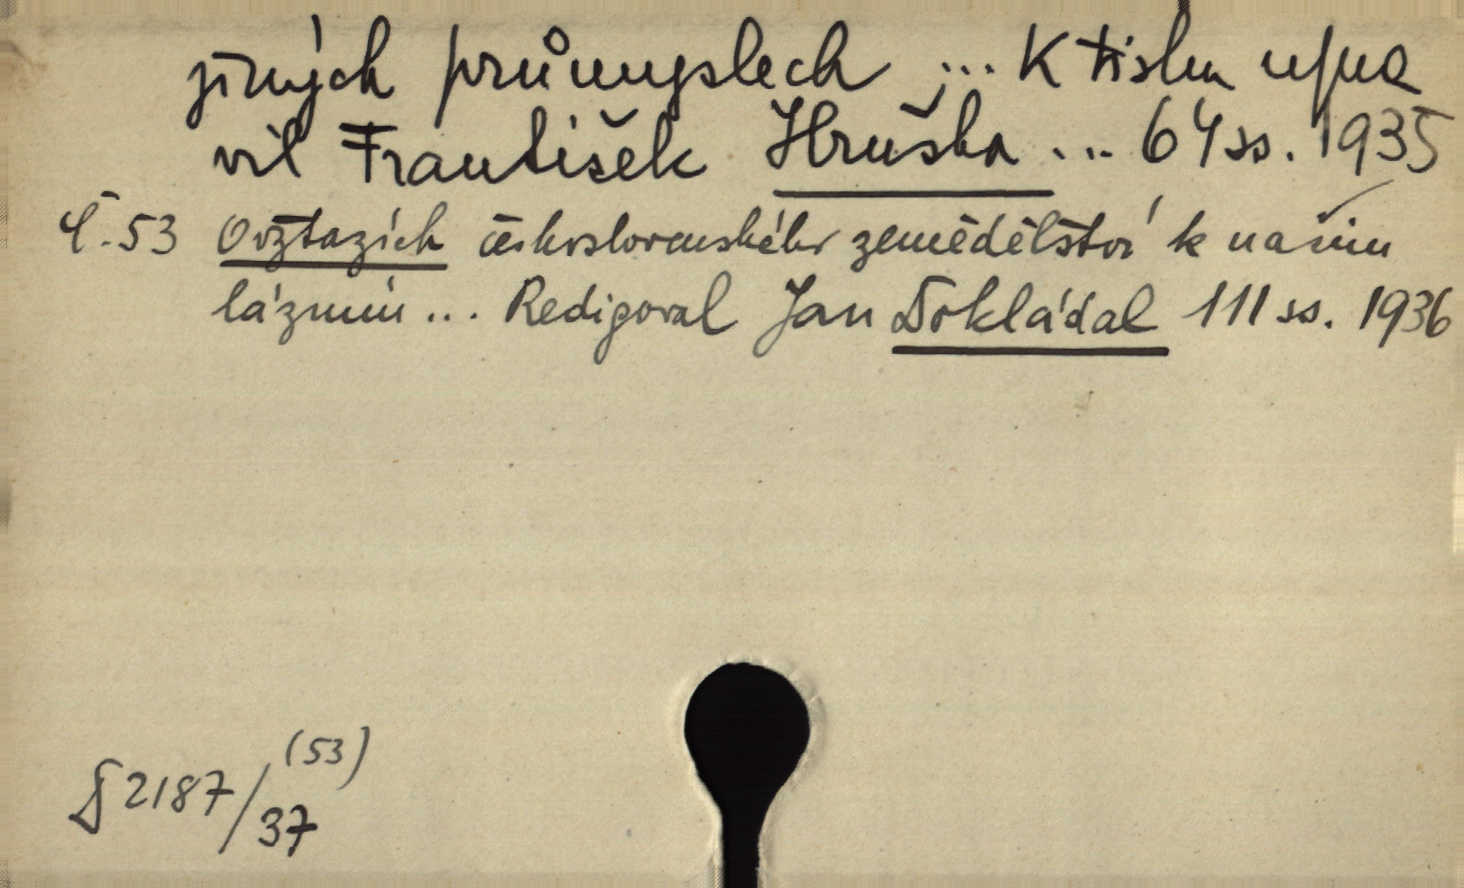 jiných průmyslech ... K tisku upra
vil František Hruška ... 64 ss. 1935
Č. 53 O vztazích československého zemědělství k našim
lázním ... Redigoval Jan Dokládal 111 ss. 1936
(53)
§ 2187/37